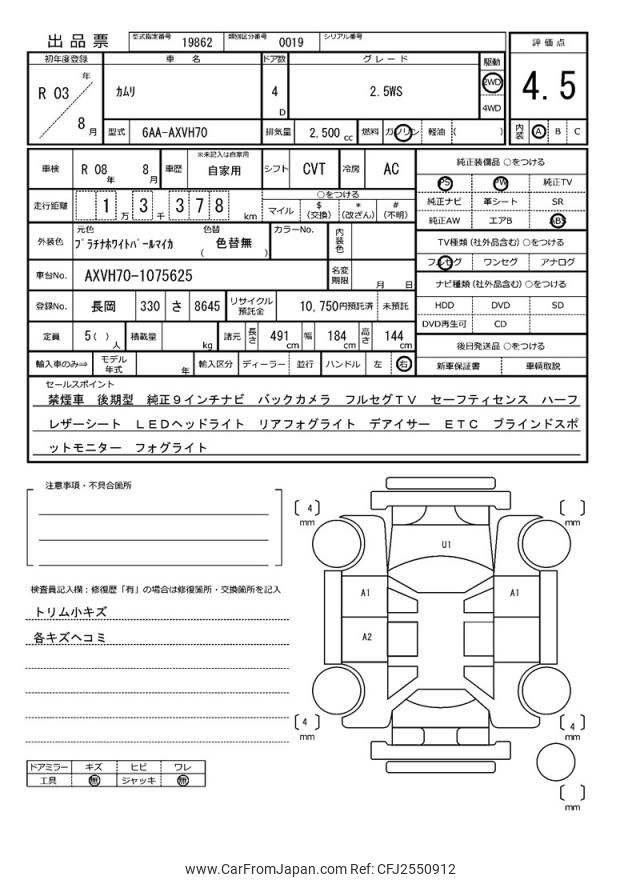 出品票
型式指定番号 19862 類別区分番号 0019 シリアル番号
初年度登録 車名 ドア数 グレード 駆動
R 03 年 8 月
カムリ
4 D
2.5WS
2WD
4WD
評価点
4.5
内装 A B C
型式 6AA-AXVH70 排気量 2,500 cc 燃料 ガソリン 軽油 ( )
車検 R 08 年 8 月 車歴 ※未記入は自家用 自家用 シフト CVT 冷房 AC
走行距離 1 万 3 千 3 7 8 km
○をつける
マイル $ (交換) * (改ざん) # (不明)
外装色 元色 プラチナホワイトパールマイカ 色替 ( 色替無 ) カラーNo. 内装色
車台No. AXVH70-1075625 名変期限 月 日
登録No. 長岡 330 さ 8645 リサイクル預託金 10,750円預託済 未預託
定員 5( ) 人 積載量 kg 諸元 長さ 491 cm 幅 184 cm 高さ 144 cm
輸入車のみ⇒ モデル年式 年 輸入区分 ディーラー 並行 ハンドル 左 右
純正装備品 ○をつける
PS PW 純正TV
純正ナビ 革シート SR
純正AW エアB ABS
TV種類 (社外品含む) ○をつける
フルセグ ワンセグ アナログ
ナビ種類 (社外品含む) ○をつける
HDD DVD SD
DVD再生可 CD
後日発送品 ○をつける
新車保証書 車輌取説
セールスポイント
禁煙車 後期型 純正9インチナビ バックカメラ フルセグTV セーフティセンス ハーフ
レザーシート LEDヘッドライト リアフォグライト デアイサー ETC ブラインドスポ
ットモニター フォグライト
注意事項・不具合箇所
検査員記入欄：修復歴「有」の場合は修復箇所・交換箇所を記入
トリム小キズ
各キズヘコミ
ドアミラー キズ ヒビ ワレ
工具 無 ジャッキ 無
[ 4 ] mm
[ 4 ] mm
U1
A1
A1
A2
[ 4 ] mm
[ 4 ] mm
[ ] mm
www.CarFromJapan.com Ref: CFJ2550912